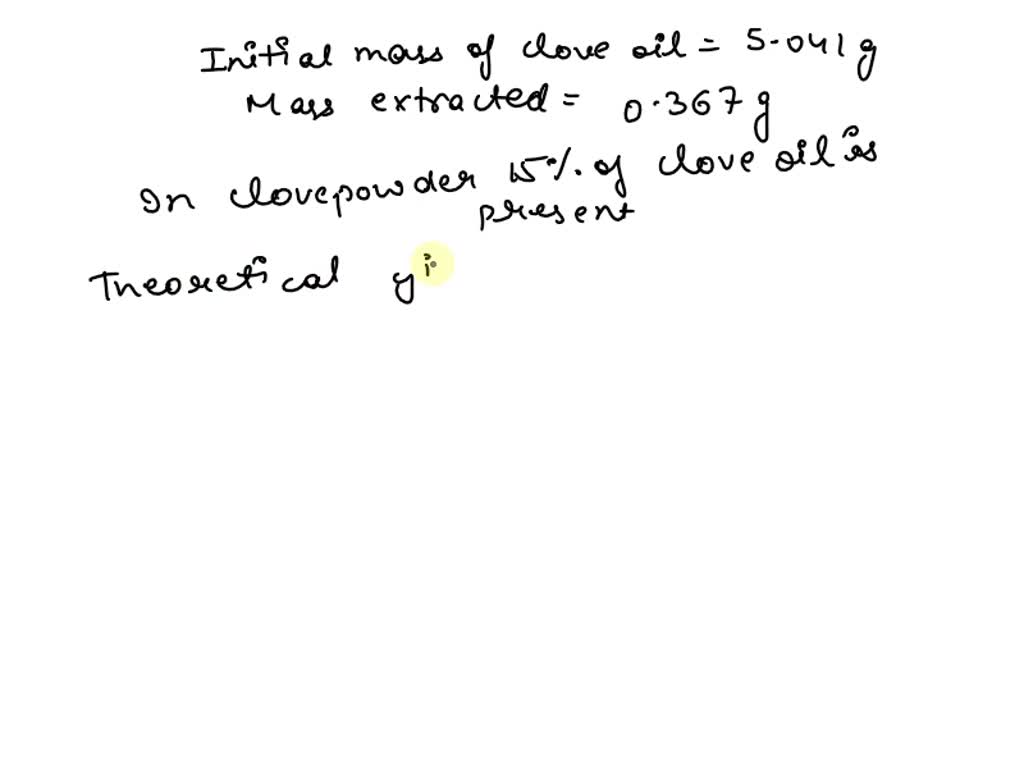 Initial mass of clove oil = 5.041 g
Mass extracted = 0.367 g
In clovepowder 15%. of clove oil is
present
Theoretical yi